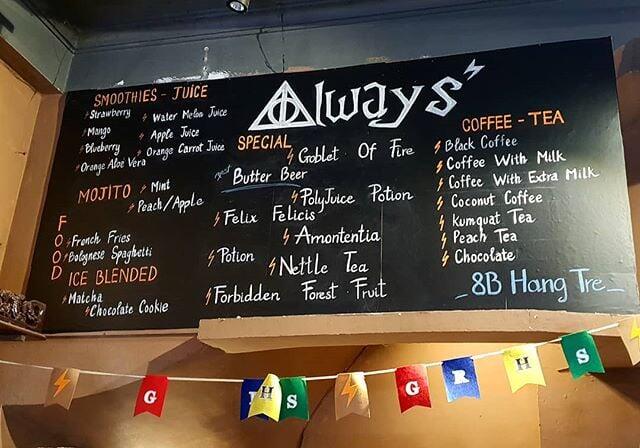 Always
SMOOTHIES - JUICE
Strawberry
Mango
Blueberry
Orange Aloe Vera
Water Melon Juice
Apple Juice
Orange Carrot Juice
MOJITO
Mint
Peach/Apple
FOOD
French Fries
Bolognese Spaghetti
ICE BLENDED
Matcha
Chocolate Cookie
SPECIAL
Goblet Of Fire
Butter Beer
PolyJuice Potion
Felix Felicis
Amontentia
Potion
Nettle Tea
Forbidden Forest Fruit
COFFEE - TEA
Black Coffee
Coffee With Milk
Coffee With Extra Milk
Coconut Coffee
Kumquat Tea
Peach Tea
Chocolate
_8B Hang Tre_
G
H
S
G
R
H
S